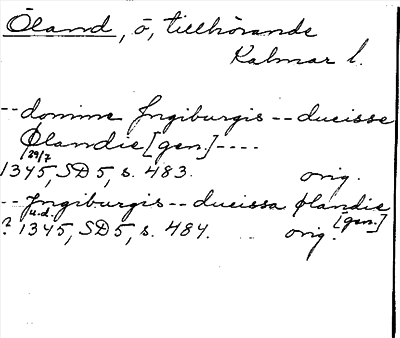 Öland, ö, tillhörande
Kalmar l.
-- domine Jngiburgis -- ducisse
Ølandie [gen.] ----
29/7
1345, SD 5, s. 483. orig.
-- Jngiburgis -- ducissa ølandie
u.d. [gen.]
? 1345, SD 5, s. 484. orig.